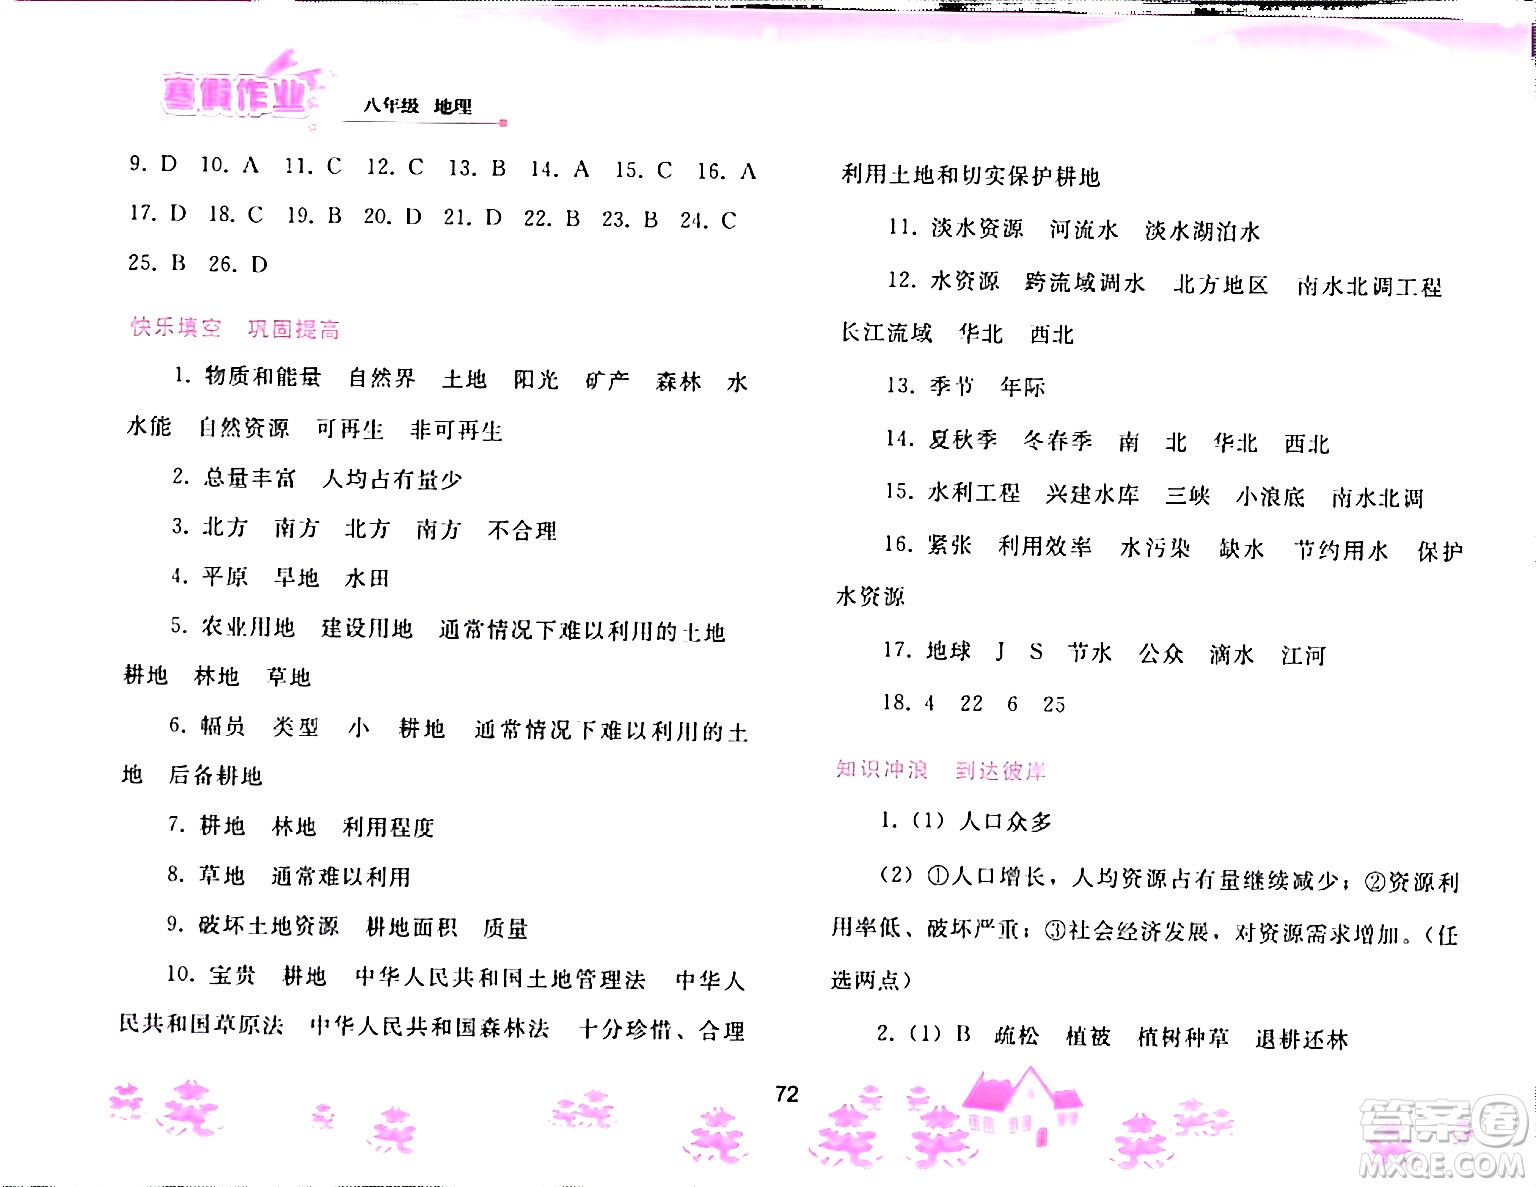 寒假作业
八年级 地理
9. D 10. A 11. C 12. C 13. B 14. A 15. C 16. A
17. D 18. C 19. B 20. D 21. D 22. B 23. B 24. C
25. B 26. D
快乐填空 巩固提高
1. 物质和能量 自然界 土地 阳光 矿产 森林 水
水能 自然资源 可再生 非可再生
2. 总量丰富 人均占有量少
3. 北方 南方 北方 南方 不合理
4. 平原 旱地 水田
5. 农业用地 建设用地 通常情况下难以利用的土地
耕地 林地 草地
6. 幅员 类型 小 耕地 通常情况下难以利用的土
地 后备耕地
7. 耕地 林地 利用程度
8. 草地 通常难以利用
9. 破坏土地资源 耕地面积 质量
10. 宝贵 耕地 中华人民共和国土地管理法 中华人
民共和国草原法 中华人民共和国森林法 十分珍惜、合理
利用土地和切实保护耕地
11. 淡水资源 河流水 淡水湖泊水
12. 水资源 跨流域调水 北方地区 南水北调工程
长江流域 华北 西北
13. 季节 年际
14. 夏秋季 冬春季 南 北 华北 西北
15. 水利工程 兴建水库 三峡 小浪底 南水北调
16. 紧张 利用效率 水污染 缺水 节约用水 保护
水资源
17. 地球 J S 节水 公众 滴水 江河
18. 4 22 6 25
知识冲浪 到达彼岸
1. (1) 人口众多
(2) ①人口增长，人均资源占有量继续减少；②资源利
用率低、破坏严重；③社会经济发展，对资源需求增加。（任
选两点）
2. (1) B 疏松 植被 植树种草 退耕还林
72
答案圈
MXQE.COM